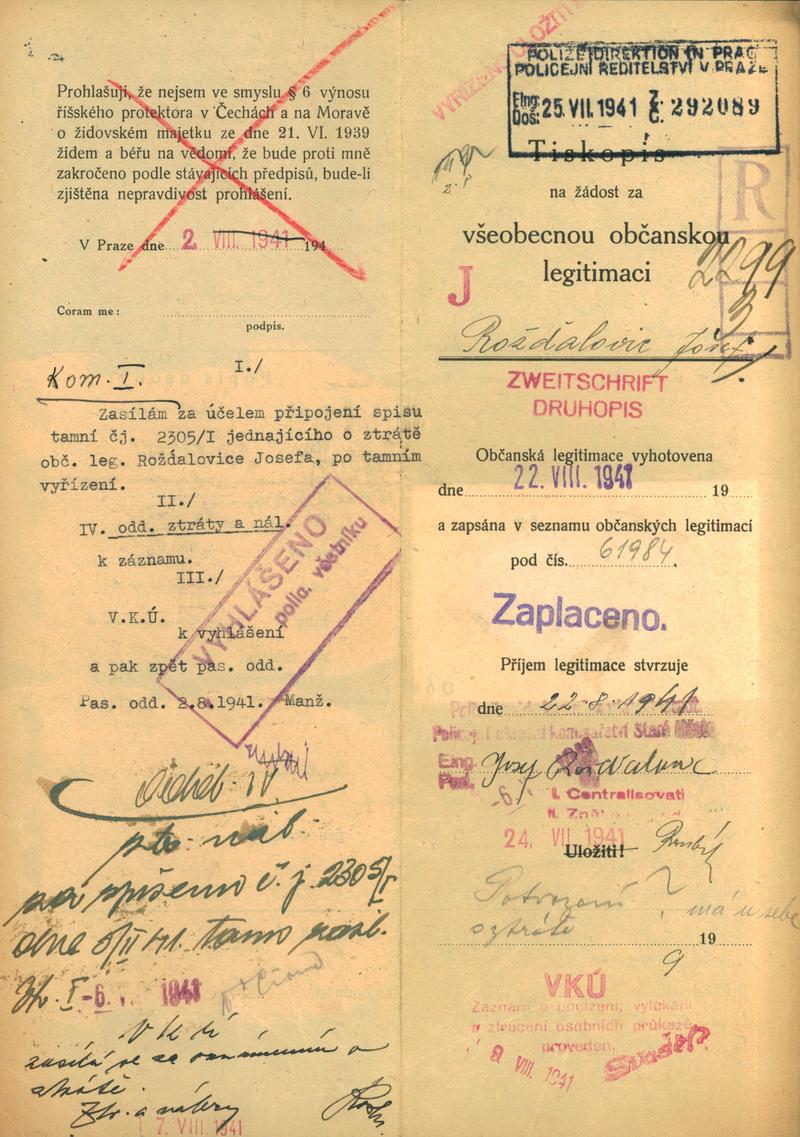 Prohlašuji, že nejsem ve smyslu § 6 výnosu
říšského protektora v Čechách a na Moravě
o židovském majetku ze dne 21. VI. 1939
židem a béřu na vědomí, že bude proti mně
zakročeno podle stávajících předpisů, bude-li
zjištěna nepravdivost prohlášení.
V Praze dne 2 VIII. 1941 194
Coram me:
podpis.
Kom. I.
I./
Zasílám za účelem připojení spisu
tamní čj. 2305/I jednajícího o ztrátě
obč. leg. Roždalovice Josefa, po tamním
vyřízení.
II./
IV. odd. ztráty a nál.
k záznamu.
III./
V.K.Ú.
k vyhlášení
a pak zpět pas. odd.
Pas. odd. 2.8.1941. Manž.
VYHLÁŠENO
polic. věstníku
IV
č. j. 2305/I
dne
-6. 1941
a nálezy
7. VIII. 1941
POLIZEIDIREKTION IN PRAG
POLICEJNÍ ŘEDITELSTVÍ V PRAZE
Eing. Doš: 25. VII. 1941 Z. Č. 292089
Tiskopis
na žádost za
všeobecnou občanskou
legitimaci
R
2299
3
J
Roždalovic Josef
ZWEITSCHRIFT
DRUHOPIS
Občanská legitimace vyhotovena
dne 22. VIII. 1941 19
a zapsána v seznamu občanských legitimací
pod čís. 61984.
Zaplaceno.
Příjem legitimace stvrzuje
dne 22-8-1941
Staré Město
Eing.
Pod.
Josef Roždalovic
I. Centralisovati
24. VII 1941
Uložiti!
Potvrzení má u sebe
o ztrátě
19
9
VKÚ
Záznam o odcizení, vylákání
a ztracení osobních průkazů
proveden.
8 VIII. 1941